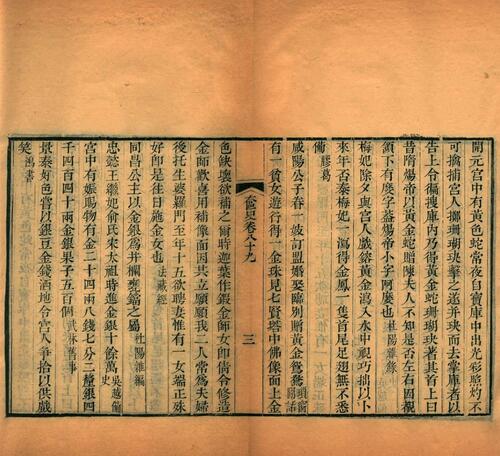 開元宮中有黃色蛇常夜自寶庫中出光彩照灼不
可擒捕宮人擲珊瑚玦擊之遂并玦而去掌庫者以
告上令徧搜庫內乃得黃金蛇珊瑚玦著其首上曰
昔隋煬帝以黃金蛇贈陳夫人不知是否左右因視
頷下有麼字蓋煬帝小字阿麼也 杜陽雜錄
梅妃除夕與宮人戲鎔黃金瀉入水中視巧拙以卜
來年否泰梅妃一瀉得金鳳一隻首尾足翅無不悉
備 膠葛
咸陽公子春一妓訂盟婚娶臨別贈黃金鴛鴦
有一貧女遊行得一金珠見七賢塔中佛像面上金
金史卷八十九
三
色缺壞欲補之爾時迦葉作鍛金師女即倩令修造
金師歡喜用補像面因共立願願我二人常為夫婦
後托生婆羅門至年十五欲聘妻惟有一女端正殊
好卽是往日施金女也 法藏經
同昌公主以金銀為井欄甕鐺之屬 杜陽雜編
忠懿王繼妃俞氏宋太祖時進金銀十餘萬 吳越備史
宮中有娠賜物有金二十四兩八錢七分二釐銀四
千四百四十兩金銀果子五百個 武林舊事
景泰好色嘗以銀豆金錢洒地令宮人爭拾以供戲
笑 鴻書